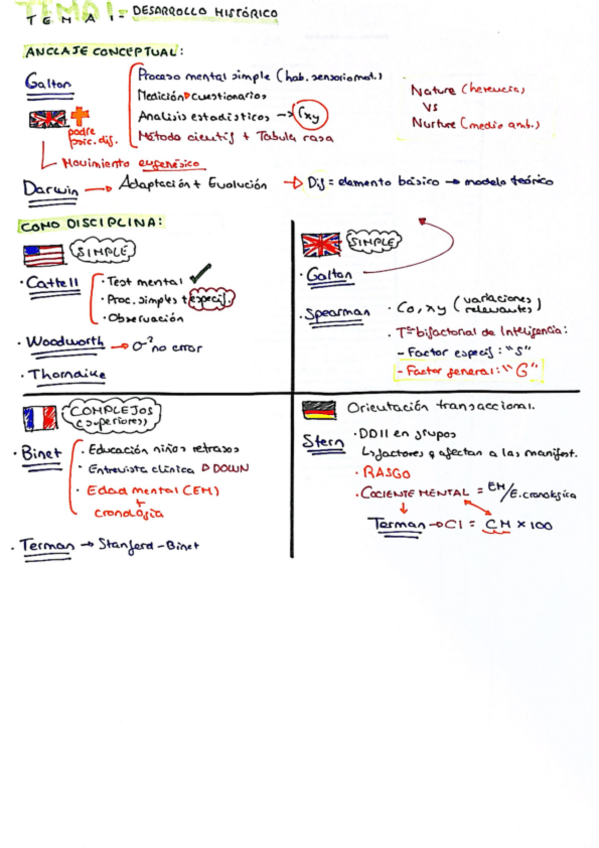 TEMA 1 = DESARROLLO HISTÓRICO
TEMA 1
ANCLAJE CONCEPTUAL:
Galton
padre psic. dif.
Proceso mental simple (hab. sensoriomot.)
Medición → cuestionarios
Análisis estadísticos → rxy
Método científ + Tabula rasa
Nature (herencia)
VS
Nurture (medio amb.)
Movimiento eugenésico
Darwin → Adaptación + Evolución → Dif = elemento básico → modelo teórico
COMO DISCIPLINA:
SIMPLE
· Cattell
· Test mental ✓
· Proc. simples + especif.
· Observación
· Woodworth → σ² no error
· Thorndike
SIMPLE
· Galton
· Spearman
· Co, xy (variaciones relevantes)
· Tª bifactorial de Inteligencia:
- Factor especif: "S"
- Factor general: "G"
COMPLEJOS
(superiores)
· Binet
· Educación niños retrasos
· Entrevista clínica → DOWN
· Edad mental (EM)
+
cronológia
· Terman → Stanford-Binet
Orientación transaccional.
Stern
· DDII en grupos
↳ factores q afectan a las manifest.
· RASGO
· COCIENTE MENTAL = EM/E.cronológica
Terman → CI = CM × 100